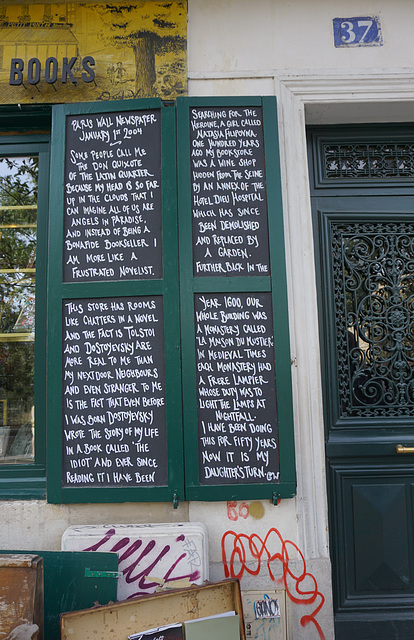 BOOKS
37
PARIS WALL NEWSPAPER
JANUARY 1ST 2004
SOME PEOPLE CALL ME
THE DON QUIXOTE
OF THE LATIN QUARTER
BECAUSE MY HEAD IS SO FAR
UP IN THE CLOUDS THAT I
CAN IMAGINE ALL OF US ARE
ANGELS IN PARADISE.
AND INSTEAD OF BEING A
BONAFIDE BOOKSELLER I
AM MORE LIKE A
FRUSTRATED NOVELIST.
THIS STORE HAS ROOMS
LIKE CHAPTERS IN A NOVEL
AND THE FACT IS TOLSTOI
AND DOSTOYEVSKY ARE
MORE REAL TO ME THAN
MY NEXT DOOR NEIGHBOURS
AND EVEN STRANGER TO ME
IS THE FACT THAT EVEN BEFORE
I WAS BORN DOSTOYEVSKY
WROTE THE STORY OF MY LIFE
IN A BOOK CALLED 'THE
IDIOT' AND EVER SINCE
READING IT I HAVE BEEN
SEARCHING FOR THE
HEROINE, A GIRL CALLED
NATASIA FILIPOVNA.
ONE HUNDRED YEARS
AGO MY BOOKSTORE
WAS A WINE SHOP
HIDDEN FROM THE SEINE
BY AN ANNEX OF THE
HOTEL DIEU HOSPITAL
WHICH HAS SINCE
BEEN DEMOLISHED
AND REPLACED BY
A GARDEN.
FURTHER BACK IN THE
YEAR 1600, OUR
WHOLE BUILDING WAS
A MONASTERY CALLED
'LA MAISON DU MUSTIER'
IN MEDIEVAL TIMES
EACH MONASTERY HAD
A FRERE LAMPIER
WHOSE DUTY WAS TO
LIGHT THE LAMPS AT
NIGHTFALL.
I HAVE BEEN DOING
THIS FOR FIFTY YEARS
NOW IT IS MY
DAUGHTER'S TURN. GW